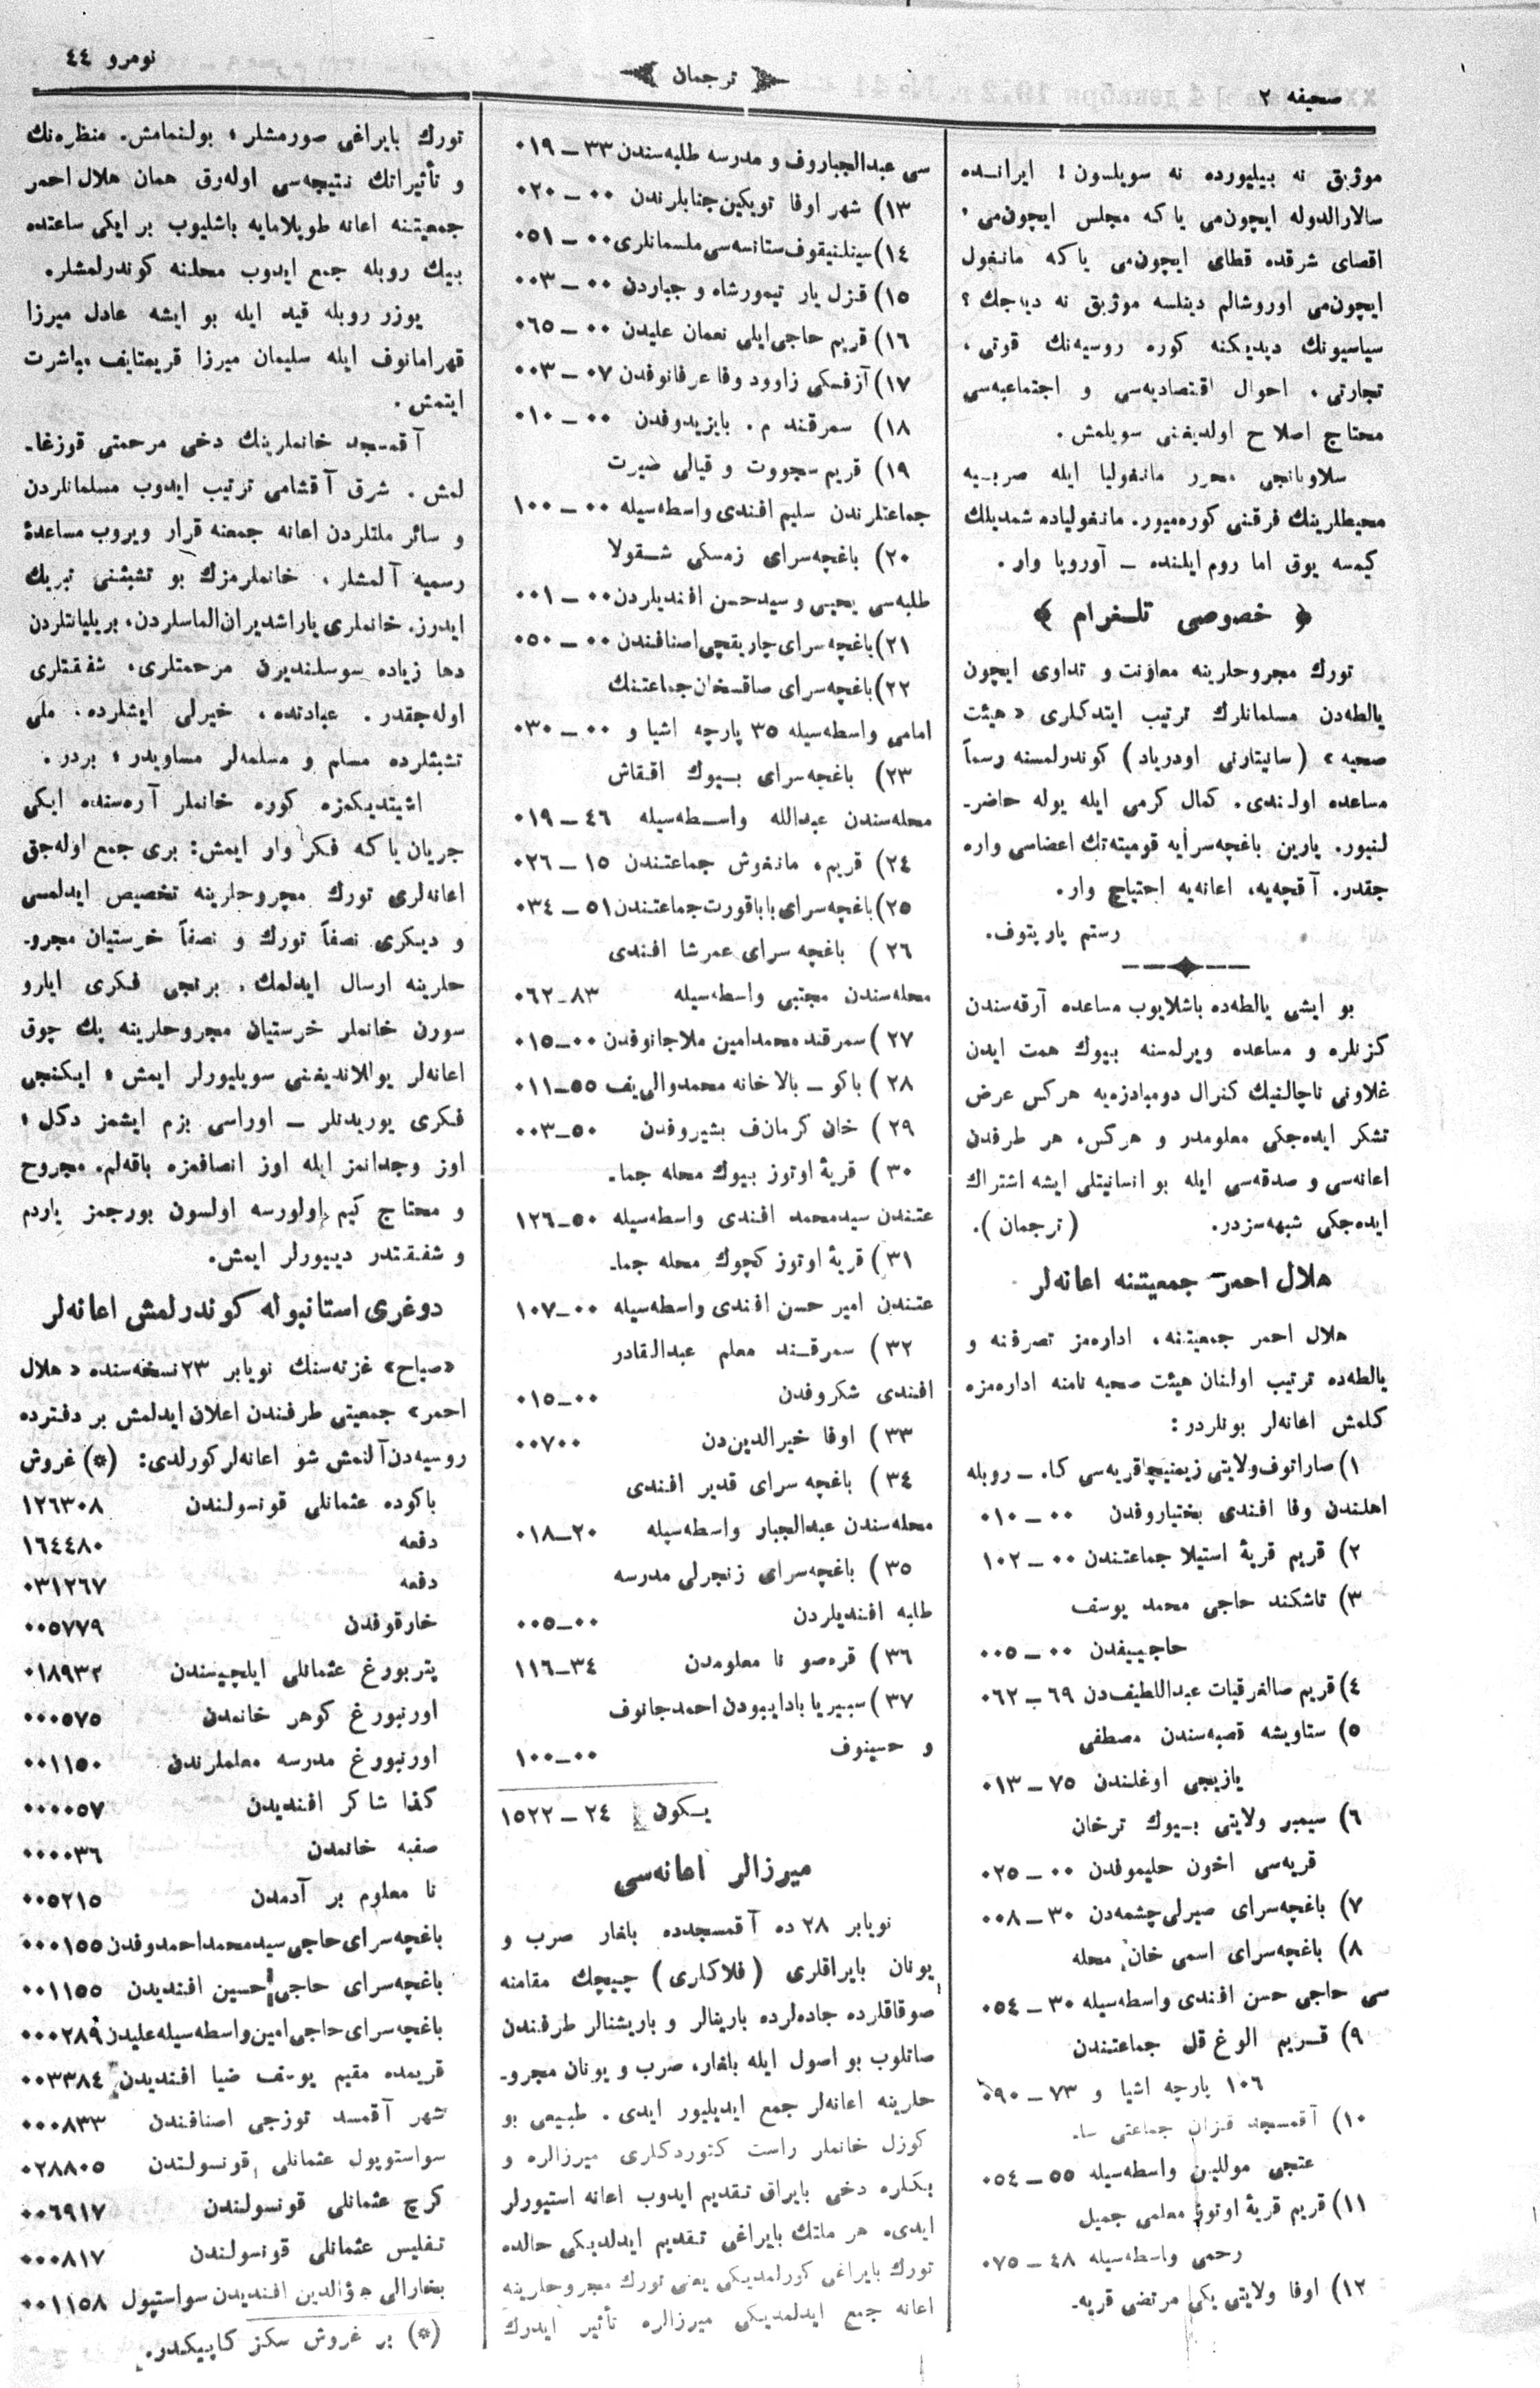 صحیفه ٢
ترجمان
نومرو ٤٤
موژیق نه بیلیورده نه سویلسون! ایرانده
سالارالدوله ایچون‌می یا که مجلس ایچون‌می ،
اقصای شرقده قطای ایچون‌می یا که مانغول
ایچون‌می اوروشالم دینلسه موژیق نه دیه‌جك ؟
سیاسیونك دیدیکنه کوره روسیه‌نك قوتی ،
تجارتی ، احوال اقتصادیه‌سی و اجتماعیه‌سی
محتاج اصلاح اولدیغنی سویلمش .
سلاویانجی محرر مانغولیا ایله صربیه
محیطلرینك فرقنی کوره‌میور. مانغولیاده شمدیلك
کیمسه یوق اما روم ایلنده – آوروپا وار .
﴿ خصوصی تلغرام ﴾
تورك مجروحلرینه معاونت و تداوی ایچون
یالطه‌دن مسلمانلرك ترتیب ایتدکلری « هیئت
صحیه » (سانیتارنی اودریاد) کوندرلمسنه رسماً
مساعده اولندی. کمال کرمی ایله یوله حاضر-
لنیور. یارین باغچه‌سرایه قومیته‌تك اعضاسی واره
جقدر. آقچه‌یه، اعانه‌یه احتیاج وار.
رستم پاریتوف.
بو ایشی یالطه‌ده باشلایوب مساعده آرقه‌سندن
کزنلره و مساعده ویرلمسنه بیوك همت ایدن
غلاونی ناچالنیك کنرال دومبادزه‌یه هرکس عرض
تشکر ایده‌جکی معلومدر و هرکس، هر طرفدن
اعانه‌سی و صدقه‌سی ایله بو انسانیتلی ایشه اشتراك
ایده‌جکی شبهه‌سزدر. (ترجمان).
هلال احمر جمعیتنه اعانه‌لر
هلال احمر جمعیتنه، اداره‌مز تصرفنه و
یالطه‌ده ترتیب اولنان هیئت صحیه نامنه اداره‌مزه
کلمش اعانه‌لر بونلردر:
١) صاراتوف ولایتی زیمنیچا قریه‌سی کا. – روبله
اهلندن وفا افندی بختیاروفدن ٠٠ – ٠١٠
٢) قریم قریهٔ استیلا جماعتندن ٠٠ – ١٠٢
٣) تاشکند حاجی محمد یوسف
حاجییفدن ٠٠ – ٠٠٥
٤) قریم صالغر قیات عبداللطیف‌دن ٦٩ – ٠٦٢
٥) ستاویشه قصبه‌سندن مصطفی
یازیجی اوغلندن ٧٥ – ٠١٣
٦) سیمبر ولایتی بیوك ترخان
قریه‌سی اخون حلیموفدن ٠٠ – ٠٢٥
٧) باغچه‌سرای صیرلی چشمه‌دن ٣٠ – ٠٠٨
٨) باغچه‌سرای اسمی خان محله
سی حاجی حسن افندی واسطه‌سیله ٣٠ – ٠٥٤
٩) قریم الوغ قل جماعتندن
١٠٦ پارچه اشیا و ٧٣ – ٠٩٠
١٠) آقمسجد قزان جماعتی سا.
عتجی موللین واسطه‌سیله ٥٥ – ٠٥٤
١١) قریم قریهٔ اوتوز معلمی جمیل
رحمی واسطه‌سیله ٤٨ – ٠٧٥
١٢) اوفا ولایتی یکی مرتضی قریه.
سی عبدالجباروف و مدرسه طلبه‌سندن ٣٣ – ٠١٩
١٣) شهر اوفا تویکین جنابلرندن ٠٠ – ٠٢٠
١٤) سینلنیقوف ستانسه‌سی ملسمانلری ٠٠ – ٠٥١
١٥) قزل یار تیمورشاه و جباردن ٠٠ – ٠٠٣
١٦) قریم حاجی‌ایلی نعمان علیدن ٠٠ – ٠٦٥
١٧) آزفسکی زاوود وفا عرفانوفدن ٠٧ – ٠٠٣
١٨) سمرقند م. بایزیدوفدن ٠٠ – ٠١٠
١٩) قریم سجووت و قیالی ضیرت
جماعتلرندن سلیم افندی واسطه‌سیله ٠٠ – ١٠٠
٢٠) باغچه‌سرای زمسکی شقولا
طلبه‌سی یحیی و سیدحسن افندیلردن ٠٠ – ٠٠١
٢١) باغچه‌سرای چاریقچی اصنافندن ٠٠ – ٠٥٠
٢٢) باغچه‌سرای صاقسخان جماعتنك
امامی واسطه‌سیله ٣٥ پارچه اشیا و ٠٠ – ٠٣٠
٢٣) باغچه‌سرای بیوك اقاش
محله‌سندن عبدالله واسطه‌سیله ٤٦ – ٠١٩
٢٤) قریم، مانغوش جماعتندن ١٥ – ٠٢٦
٢٥) باغچه‌سرای باباقورت جماعتندن ٥١ – ٠٣٤
٢٦) باغچه سرای عمرشا افندی
محله‌سندن مجتبی واسطه‌سیله ٨٣ – ٠٦٢
٢٧) سمرقند محمدامین ملاجانوفدن ٠٠ – ٠١٥
٢٨) باکو – بالاخانه محمدوالی‌یف ٥٥ – ٠١١
٢٩) خان کرمان‌ف بشیروفدن ٥٠ – ٠٠٣
٣٠) قریهٔ اوتوز بیوك محله جما.
عتندن سیدمحمد افندی واسطه‌سیله ٥٠ – ١٢٦
٣١) قریهٔ اوتوز کچوك محله جما.
عتندن امیر حسن افندی واسطه‌سیله ٠٠ – ١٠٧
٣٢) سمرقند معلم عبدالقادر
افندی شکروفدن ٠٠ – ٠١٥
٣٣) اوفا خیرالدین‌دن ٠٠٧٠٠
٣٤) باغچه سرای قدیر افندی
محله‌سندن عبدالجبار واسطه‌سیله ٢٠ – ٠١٨
٣٥) باغچه‌سرای زنجرلی مدرسه
طلبه افندیلردن ٠٠ – ٠٠٥
٣٦) قره‌صو نا معلومدن ٣٤ – ١١٦
٣٧) سیبیریا بادایبودن احمدجانوف
و حسینوف ٠٠ – ١٠٠
یکون ٢٤ – ١٥٢٢
میرزالر اعانه‌سی
نویابر ٢٨ ده آقمسجدده بلغار صرب و
یونان بایراقلری (فلاکلری) چیچك مقامنه
صوقاقلرده جاده‌لرده بارینالر و باریشنالر طرفندن
صاتلوب بو اصول ایله بلغار، صرب و یونان مجرو-
حلرینه اعانه‌لر جمع ایدیلیور ایدی . طبیعی بو
کوزل خانملر راست کتوردکلری میرزالره و
بکلره دخی بایراق تقدیم ایدوب اعانه استیورلر
ایدی. هر ملتك بایراغی تقدیم ایدلدیکی حالده
تورك بایراغی کورلمدیکی یعنی تورك مجروحلرینه
اعانه جمع ایدلمدیکی میرزالره تأثیر ایدرك
تورك بایراغی صورمشلر ؛ بولنمامش. منظره‌نك
و تأثیراتك نتیجه‌سی اوله‌رق همان هلال احمر
جمعیتنه اعانه طوپلامایه باشلیوب بر ایکی ساعتده
بیك روبله جمع ایدوب محلنه کوندرلمشلر.
یوزر روبله قید ایله بو ایشه عادل میرزا
قهرامانوف ایله سلیمان میرزا قریمتایف مباشرت
ایتمش .
آقمسجد خانملرینك دخی مرحمتی قوزغا-
لمش . شرق آقشامی ترتیب ایدوب مسلمانلردن
و سائر ملتلردن اعانه جمعنه قرار ویروب مساعدهٔ
رسمیه آلمشلر . خانملرمزك بو تشبثنی تبریك
ایدرز. خانملری یاراشدیران الماسلردن، بریلیانتلردن
دها زیاده سوسلندیرن مرحمتلری، شفقتلری
اوله‌جقدر . عبادتده ، خیرلی ایشلرده ، ملی
تشبثلرده مسلم و مسلمه‌لر مساویدر ؛ بردر .
اشیتدیکمزه کوره خانملر آره‌سنده ایکی
جریان یا که فکر وار ایمش: بری جمع اوله‌جق
اعانه‌لری تورك مجروحلرینه تخصیص ایدلمسی
و دیکری نصفاً تورك و نصفاً خرستیان مجرو-
حلرینه ارسال ایدلمك . برنجی فکری ایلرو
سورن خانملر خرستیان مجروحلرینه پك چوق
اعانه‌لر یوللاندیغنی سویلیورلر ایمش ؛ ایکنجی
فکری یوریدنلر – اوراسی بزم ایشمز دکل ؛
اوز وجدانمز ایله اوز انصافمزه باقه‌لم. مجروح
و محتاج کیم اولورسه اولسون بورجمز یاردم
و شفقتدر دییورلر ایمش.
دوغری استانبوله کوندرلمش اعانه‌لر
«صباح» غزته‌سنك نویابر ٢٣ نسخه‌سنده « هلال
احمر» جمعیتی طرفندن اعلان ایدلمش بر دفترده
روسیه‌دن آلنمش شو اعانه‌لر کورلدی: (*) غروش
باکوده عثمانلی قونسولندن ١٢٦٣٠٨
دفعه ١٦٤٤٨٠
دفعه ٠٣١٢٦٧
خارقوفدن ٠٠٥٧٧٩
پتربورغ عثمانلی ایلچیسندن ٠١٨٩٣٢
اورنبورغ کوهر خانمدن ٠٠٠٥٧٥
اورنبورغ مدرسه معلملرندن ٠٠١١٥٠
کذا شاکر افندیدن ٠٠٠٠٥٧
صفیه خانمدن ٠٠٠٠٣٦
نا معلوم بر آدمدن ٠٠٥٢١٥
باغچه‌سرای حاجی سیدمحمد احمدوفدن ٠٠٠١٥٥
باغچه‌سرای حاجی حسین افندیدن ٠٠١١٥٥
باغچه‌سرای حاجی امین واسطه‌سیله علیدن ٠٠٠٢٨٩
قریمده مقیم یوسف ضیا افندیدن ٠٠٣٣٨٤
شهر آقمسد توزجی اصنافندن ٠٠٠٨٣٣
سواستوپول عثمانلی قونسولندن ٠٢٨٨٠٥
کرچ عثمانلی قونسولندن ٠٠٦٩١٧
تفلیس عثمانلی قونسولندن ٠٠٠٨١٧
بخارالی افندیدن سواستپول ٠٠١١٥٨
(*) بر غروش سکز کاپیکدر.